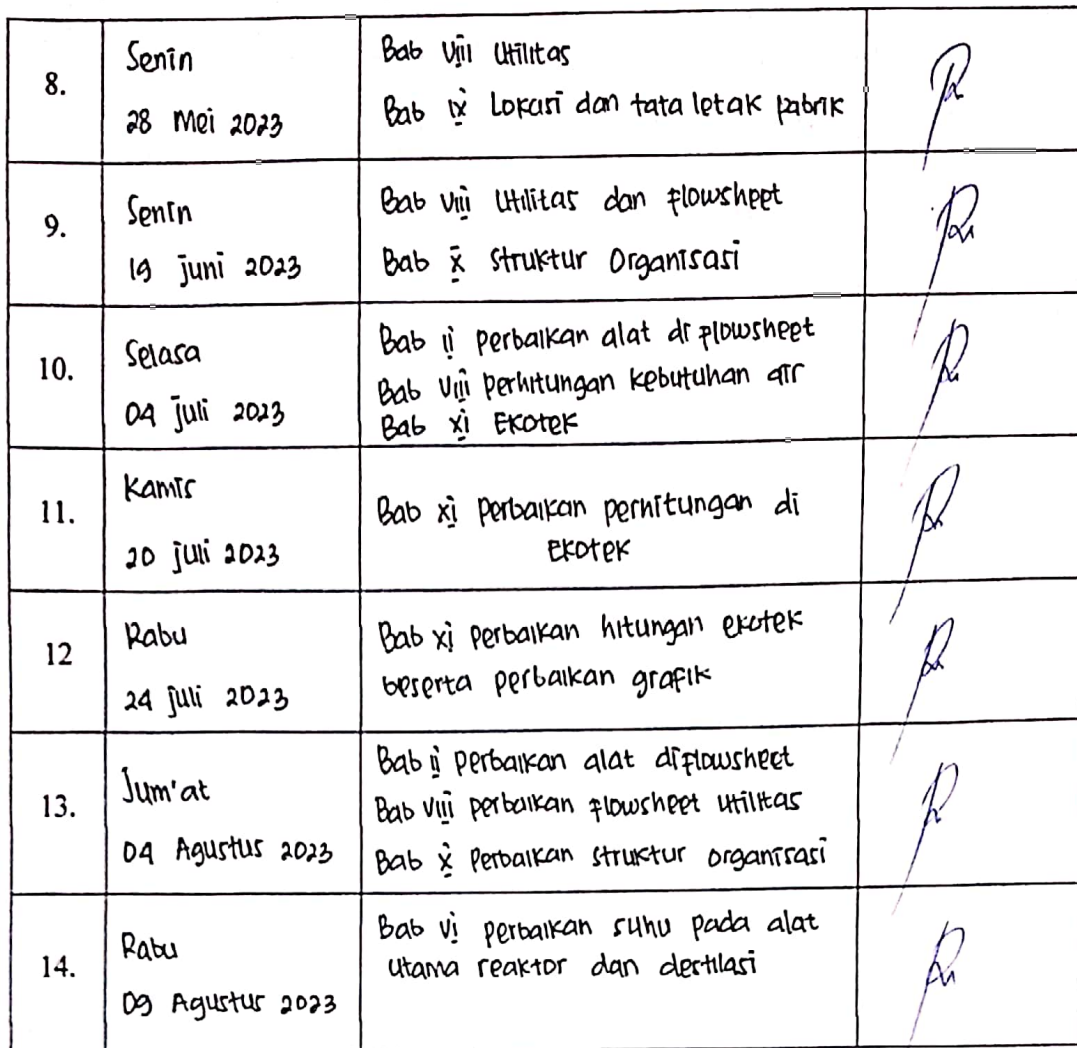 8.
Senin
28 Mei 2023
Bab viii Utilitas
Bab ix Lokasi dan tata letak pabrik
9.
Senin
19 juni 2023
Bab viii Utilitas dan flowsheet
Bab x Struktur Organisasi
10.
Selasa
04 juli 2023
Bab ii perbaikan alat di flowsheet
Bab viii perhitungan kebutuhan air
Bab xi Ekotek
11.
Kamis
20 juli 2023
Bab xi perbaikan perhitungan di
Ekotek
12
Rabu
24 juli 2023
Bab xi perbaikan hitungan ekotek
beserta perbaikan grafik
13.
Jum'at
04 Agustus 2023
Bab ii perbaikan alat diflowsheet
Bab viii perbaikan flowsheet utilitas
Bab x Perbaikan struktur organisasi
14.
Rabu
09 Agustus 2023
Bab vi perbaikan suhu pada alat
utama reaktor dan destilasi